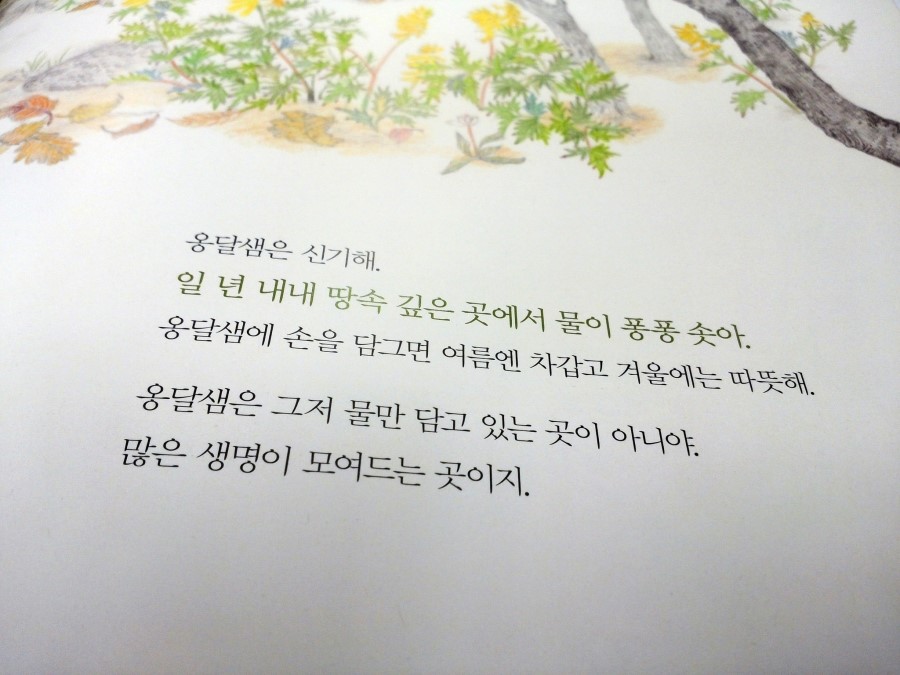 옹달샘은 신기해.
일 년 내내 땅속 깊은 곳에서 물이 퐁퐁 솟아.
옹달샘에 손을 담그면 여름엔 차갑고 겨울에는 따뜻해.
옹달샘은 그저 물만 담고 있는 곳이 아니야.
많은 생명이 모여드는 곳이지.